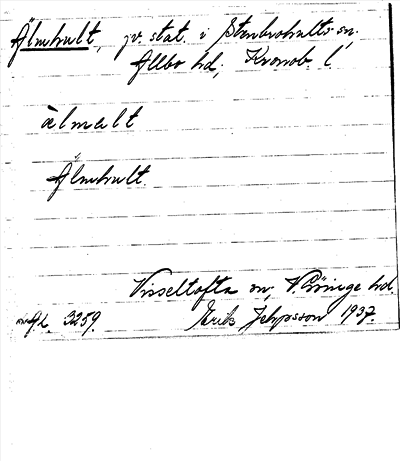 Älmhult, jv. stat. i Stenbrohults sn,
Allbo hd, Kronob. l.
älmalt
Älmhult.
Visseltofta sn, V. Göinge hd.
3259. Erik Jeppsson 1937.